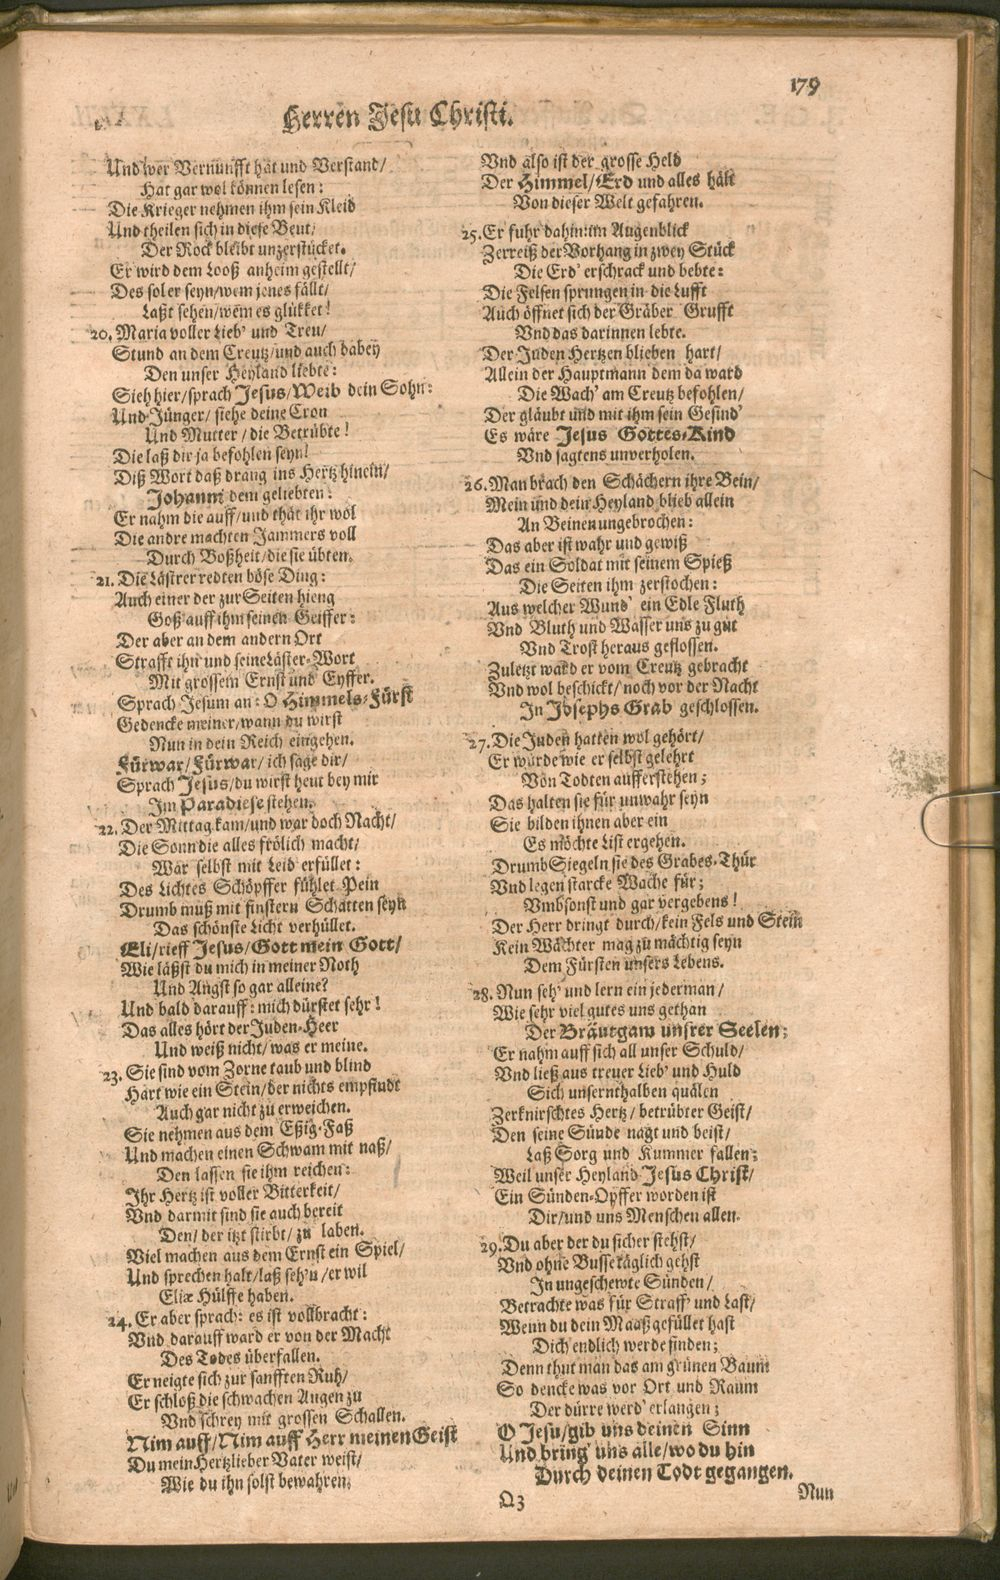 179
Herren Jesu Christi.
Und wer Vernunfft hat und Verstand/
Hat gar wol können lesen:
Die Krieger nehmen ihm sein Kleid
Und theilen sich in diese Beut/
Der Rock bleibt unzerstücket.
Er wird dem Looß anheim gestellt/
Des sol er seyn/wem jenes fällt/
Laßt sehen/wem es glükket!
20. Maria voller Lieb' und Treu/
Stund an dem Creutz/und auch dabey
Den unser Heyland liebte:
Sieh hier/sprach Jesus/Weib dein Sohn:
Und Jünger/ siehe deine Cron
Und Mutter/die Betrübte!
Die laß dir ja befohlen seyn!
Diß Wort daß drang ins Hertz hinein/
Johann dem geliebten:
Er nahm die auff/und thät ihr wol
Die andre machten Jammers voll
Durch Boßheit/die sie übten.
21. Die Lästrer redten böse Ding:
Auch einer der zur Seiten hieng
Goß auff ihm seinen Geiffer:
Der aber an dem andern Ort
Strafft ihn und seine Läster-Wort
Mit grossem Ernst und Eyffer.
Sprach Jesum an: O Himmels-Fürst
Gedencke meiner/wann du wirst
Nun in dein Reich eingehen.
Fürwar/Fürwar/ich sage dir/
Sprach Jesus/du wirst heut bey mir
Im Paradiese stehen.
22. Der Mittag kam/und war doch Nacht/
Die Sonn die alles frölich macht/
War selbst mit Leid erfüllet:
Des Lichtes Schöpffer fühlet Pein
Drumb muß mit finstern Schatten seyn
Das schönste Licht verhüllet.
Eli/rieff Jesus/Gott mein Gott/
Wie läßst du mich in meiner Noth
Und Angst so gar alleine?
Und bald darauff: mich dürstet sehr!
Das alles hört der Juden-Heer
Und weiß nicht/was er meine.
23. Sie sind vom Zorne taub und blind
Hart wie ein Stein/der nichts empfindt
Auch gar nicht zu erweichen.
Sie nehmen aus dem Eßig-Faß
Und machen einen Schwam mit naß/
Den lassen sie ihm reichen:
Ihr Hertz ist voller Bitterkeit/
Vnd darmit sind sie auch bereit
Den/der itzt stirbt/zu laben.
Viel machen aus dem Ernst ein Spiel/
Und sprechen halt/laß seh'n/er wil
Eliæ Hülffe haben.
24. Er aber sprach: es ist vollbracht:
Vnd darauff ward er von der Macht
Des Todes überfallen.
Er neigte sich zur sanfften Ruh/
Er schloß die schwachen Augen zu
Vnd schrey mit grossen Schallen.
Nim auff/Nim auff Herr meinen Geist
Du mein Hertzlieber Vater weist/
Wie du ihn solst bewahren.
Vnd also ist der grosse Held
Der Himmel/Erd und alles hält
Von dieser Welt gefahren.
25. Er fuhr dahin: im Augenblick
Zerreiß der Vorhang in zwey Stück
Die Erd' erschrack und bebte:
Die Felsen sprungen in die Lufft
Auch öffnet sich der Gräber Grufft
Vnd das darinnen lebte.
Der Juden Hertzen blieben hart/
Allein der Hauptmann dem da ward
Die Wach' am Creutz befohlen/
Der gläubt und mit ihm sein Gesind'
Es wäre Jesus Gottes-Kind
Vnd sagtens unverholen.
26. Man brach den Schächern ihre Bein/
Mein und dein Heyland blieb allein
An Beinen ungebrochen:
Das aber ist wahr und gewiß
Das ein Soldat mit seinem Spieß
Die Seiten ihm zerstochen:
Aus welcher Wund' ein Edle Fluth
Vnd Bluth und Wasser uns zu gut
Vnd Trost heraus geflossen.
Zuletzt ward er vom Creutz gebracht
Vnd wol beschickt/noch vor der Nacht
In Josephs Grab geschlossen.
27. Die Juden hatten wol gehört/
Er würde wie er selbst gelehrt
Von Todten aufferstehen;
Das halten sie für unwahr seyn
Sie bilden ihnen aber ein
Es möchte List ergehen.
Drumb Siegeln sie des Grabes-Thür
Vnd legen starcke Wache für;
Vmbsonst und gar vergebens!
Der Herr dringt durch/kein Fels und Stein
Kein Wächter mag zu mächtig seyn
Dem Fürsten unsers Lebens.
28. Nun seh' und lern ein jederman/
Wie sehr viel gutes uns gethan
Der Bräutgam unsrer Seelen;
Er nahm auff sich all unser Schuld/
Vnd ließ aus treuer Lieb' und Huld
Sich unsernthalben quälen
Zerknirschtes Hertz/ betrübter Geist/
Den seine Sünde nagt und beist/
Laß Sorg und Kummer fallen;
Weil unser Heyland Jesus Christ/
Ein Sünden-Opffer worden ist
Dir/und uns Menschen allen.
29. Du aber der du sicher stehst/
Vnd ohne Busse täglich gehst
In ungeschewte Sünden/
Betrachte was für Straff' und Last/
Wenn du dein Maaß gefüllet hast
Dich endlich werde finden;
Denn thut man das am grünen Baum
So dencke was vor Ort und Raum
Der dürre werd' erlangen;
O Jesu/gib uns deinen Sinn
Und bring' uns alle/wo du hin
Durch deinen Todt gegangen.
Q3
Nun